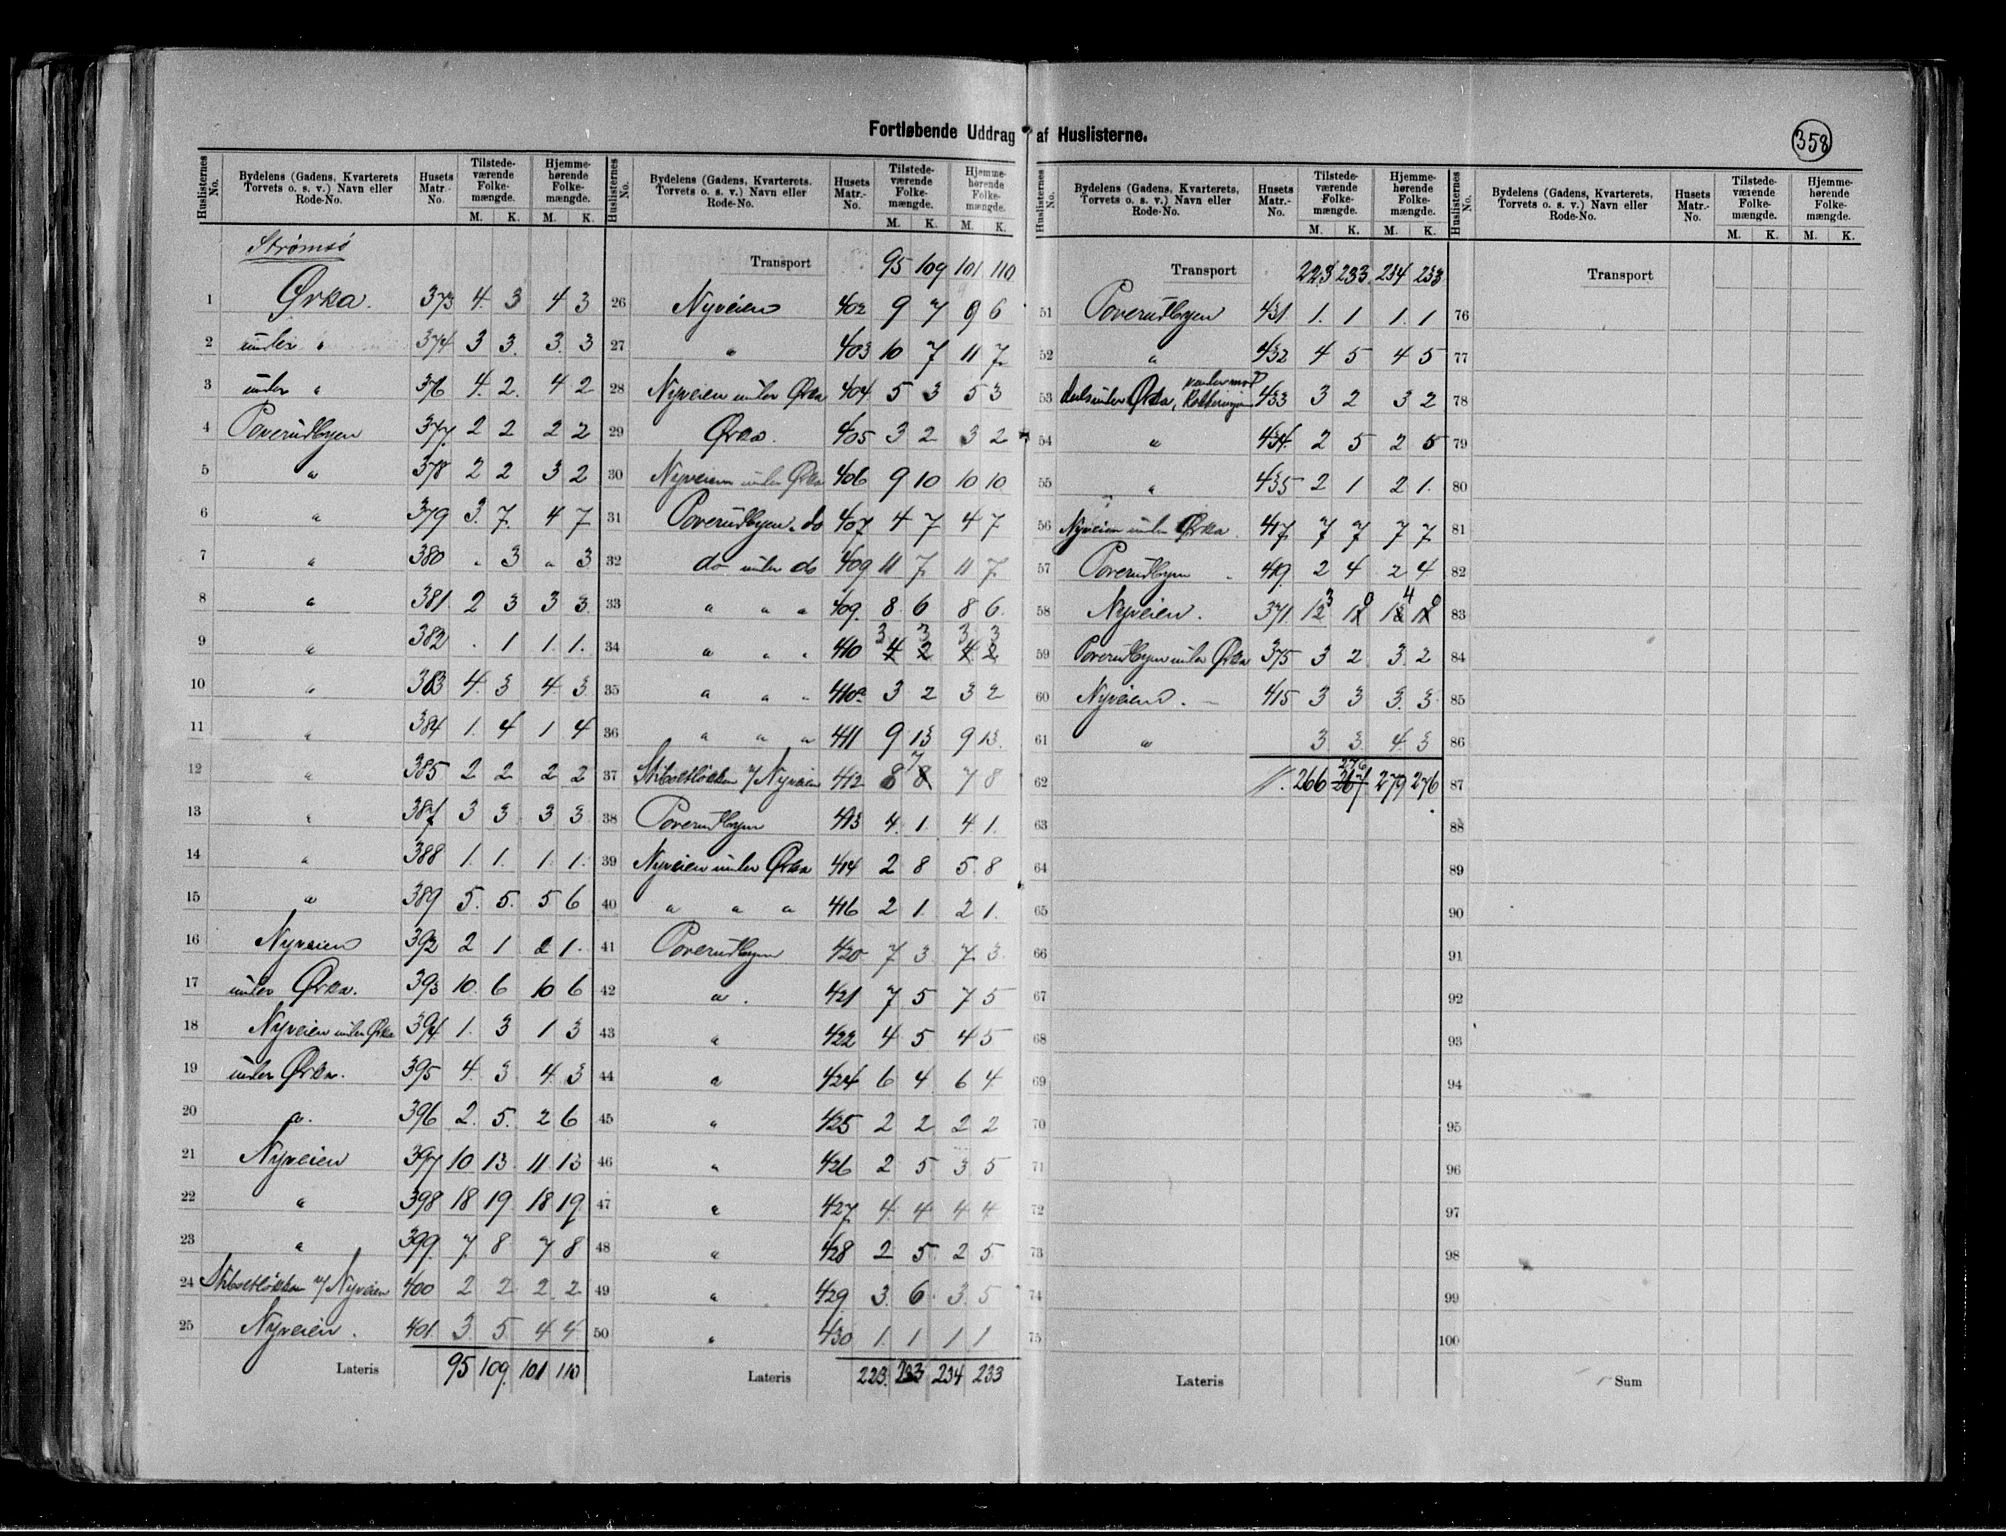 Fortløbende Uddrag af Huslisterne.
358
Huslisternes No. Bydelens (Gadens, Kvarterets Torvets o. s. v.) Navn eller Rode-No. Husets Matr.-No. Tilstedeværende Folkemængde. M. K. Hjemmehørende Folkemængde. M. K.
Strømsö
1 Ørka. 373 4. 3 4 3
2 under " 374 3 3. 3. 3
3 under " 376 4. 2. 4 2
4 Poverudbyen 377. 2 2 2 2
5 " 378 2 2 3 2
6 " 379 3. 7. 4 7
7 " 380 " 3 " 3
8 " 381. 2 3 3 3
9 " 382 . 1 1. 1.
10 " 383 4. 3 4. 3
11 " 384 1. 4 1 4
12 " 385 2 2 2 2
13 " 387 3 3 3 3
14 " 388 1. 1. 1. 1.
15 " 389 5. 5. 5 6
16 Nyveien 392 2 1 2 1.
17 under Ørka. 393 10. 6 10 6
18 Nyveien under Ørka 394 1. 3 1 3
19 under Ørka. 395 4. 3 4. 3
20 " 396 2. 5. 2 6
21 Nyveien 397 10 13. 11. 13
22 " 398 18 19 18 19
23 " 399. 7. 8 7 8
24 Stiboltløkken v/ Nyveien 400 2 2 2. 2
25 Nyveien. 401. 3. 5 4 4
Lateris 95 109. 101 110
Huslisternes No. Bydelens (Gadens, Kvarterets. Torvets o. s. v.) Navn eller Rode-No. Husets Matr.-No. Tilstedeværende Folkemængde. M. K. Hjemmehørende Folkemængde. M. K.
Transport 95 109 101 110
26 Nyveien 402 9 7 9 6
27 " 403 10 7 11 7.
28 Nyveien under Ørka 404 5 3 5 3
29 Ørka. 405 3 2 3 2
30 Nyveien under Ørka 406 9 10 10 10
31 Poverudbyen " do 407 4 7 4 7
32 do under do 409 11 7. 11 7.
33 " " " 409. 8. 6 8 6.
3 3 3 3
34 " " " 410 4 2 4 2
35 " " " 410a 3 2 3 2
36 " " " 411 9 13 9 13.
37 Stiboltløkken v/ Nyveien 412 8 8 7 7 8
38 Poverudbyen 413 4. 1. 4 1.
39 Nyveien under Ørka 414 2 8 5. 8
40 " " " 416 2 1. 2 1.
41 Poverudbyen 420 7 3 7. 3.
42 " 421 7 5 7 5
43 " 422 4 5 4 5
44 " 424 6 4 6 4
45 " 425 2 2 2 2
46 " 426 2 5 3 5
47 " 427. 4. 4 4 4
48 " 428 2 5. 2 5
49 " 429 3. 6. 3. 5
50 " 430 1. 1 1 1
Lateris 223. 233 234 233
Huslisternes No. Bydelens (Gadens, Kvarterets, Torvets o. s. v.) Navn eller Rode-No. Husets Matr.-No. Tilstedeværende Folkemængde. M. K. Hjemmehørende Folkemængde. M. K.
Transport 223 233. 234 233
51 Poverudbyen 431. 1. 1 1. 1
52 " 432 4 5 4 5
53 under Ørka, 433 3 2 3 2
54 " 434. 2 5 2 5
55 " 435 2 1 2 1.
56 Nyveien under Ørka. 417. 7 7 7 7
57 Poverudbyen 419. 2 4 2 4
58 Nyveien. 371. 12 3 12 0 13 4 12 0
59 Poverudbyen under Ørka 375 3 2 3. 2
60 Nyveien. 415 3 3 3. 3
61 " 3 3. 4 3
276
62 266 267 279 276
63
64
65
66
67
68
69
70
71
72
73
74
75
Lateris
Huslisternes No. Bydelens (Gadens, Kvarterets, Torvets o. s. v.) Navn eller Rode-No. Husets Matr.-No. Tilstedeværende Folkemængde. M. K. Hjemmehørende Folkemængde. M. K.
Transport
76
77
78
79
80
81
82
83
84
85
86
87
88
89
90
91
92
93
94
95
96
97
98
99
100
Sum